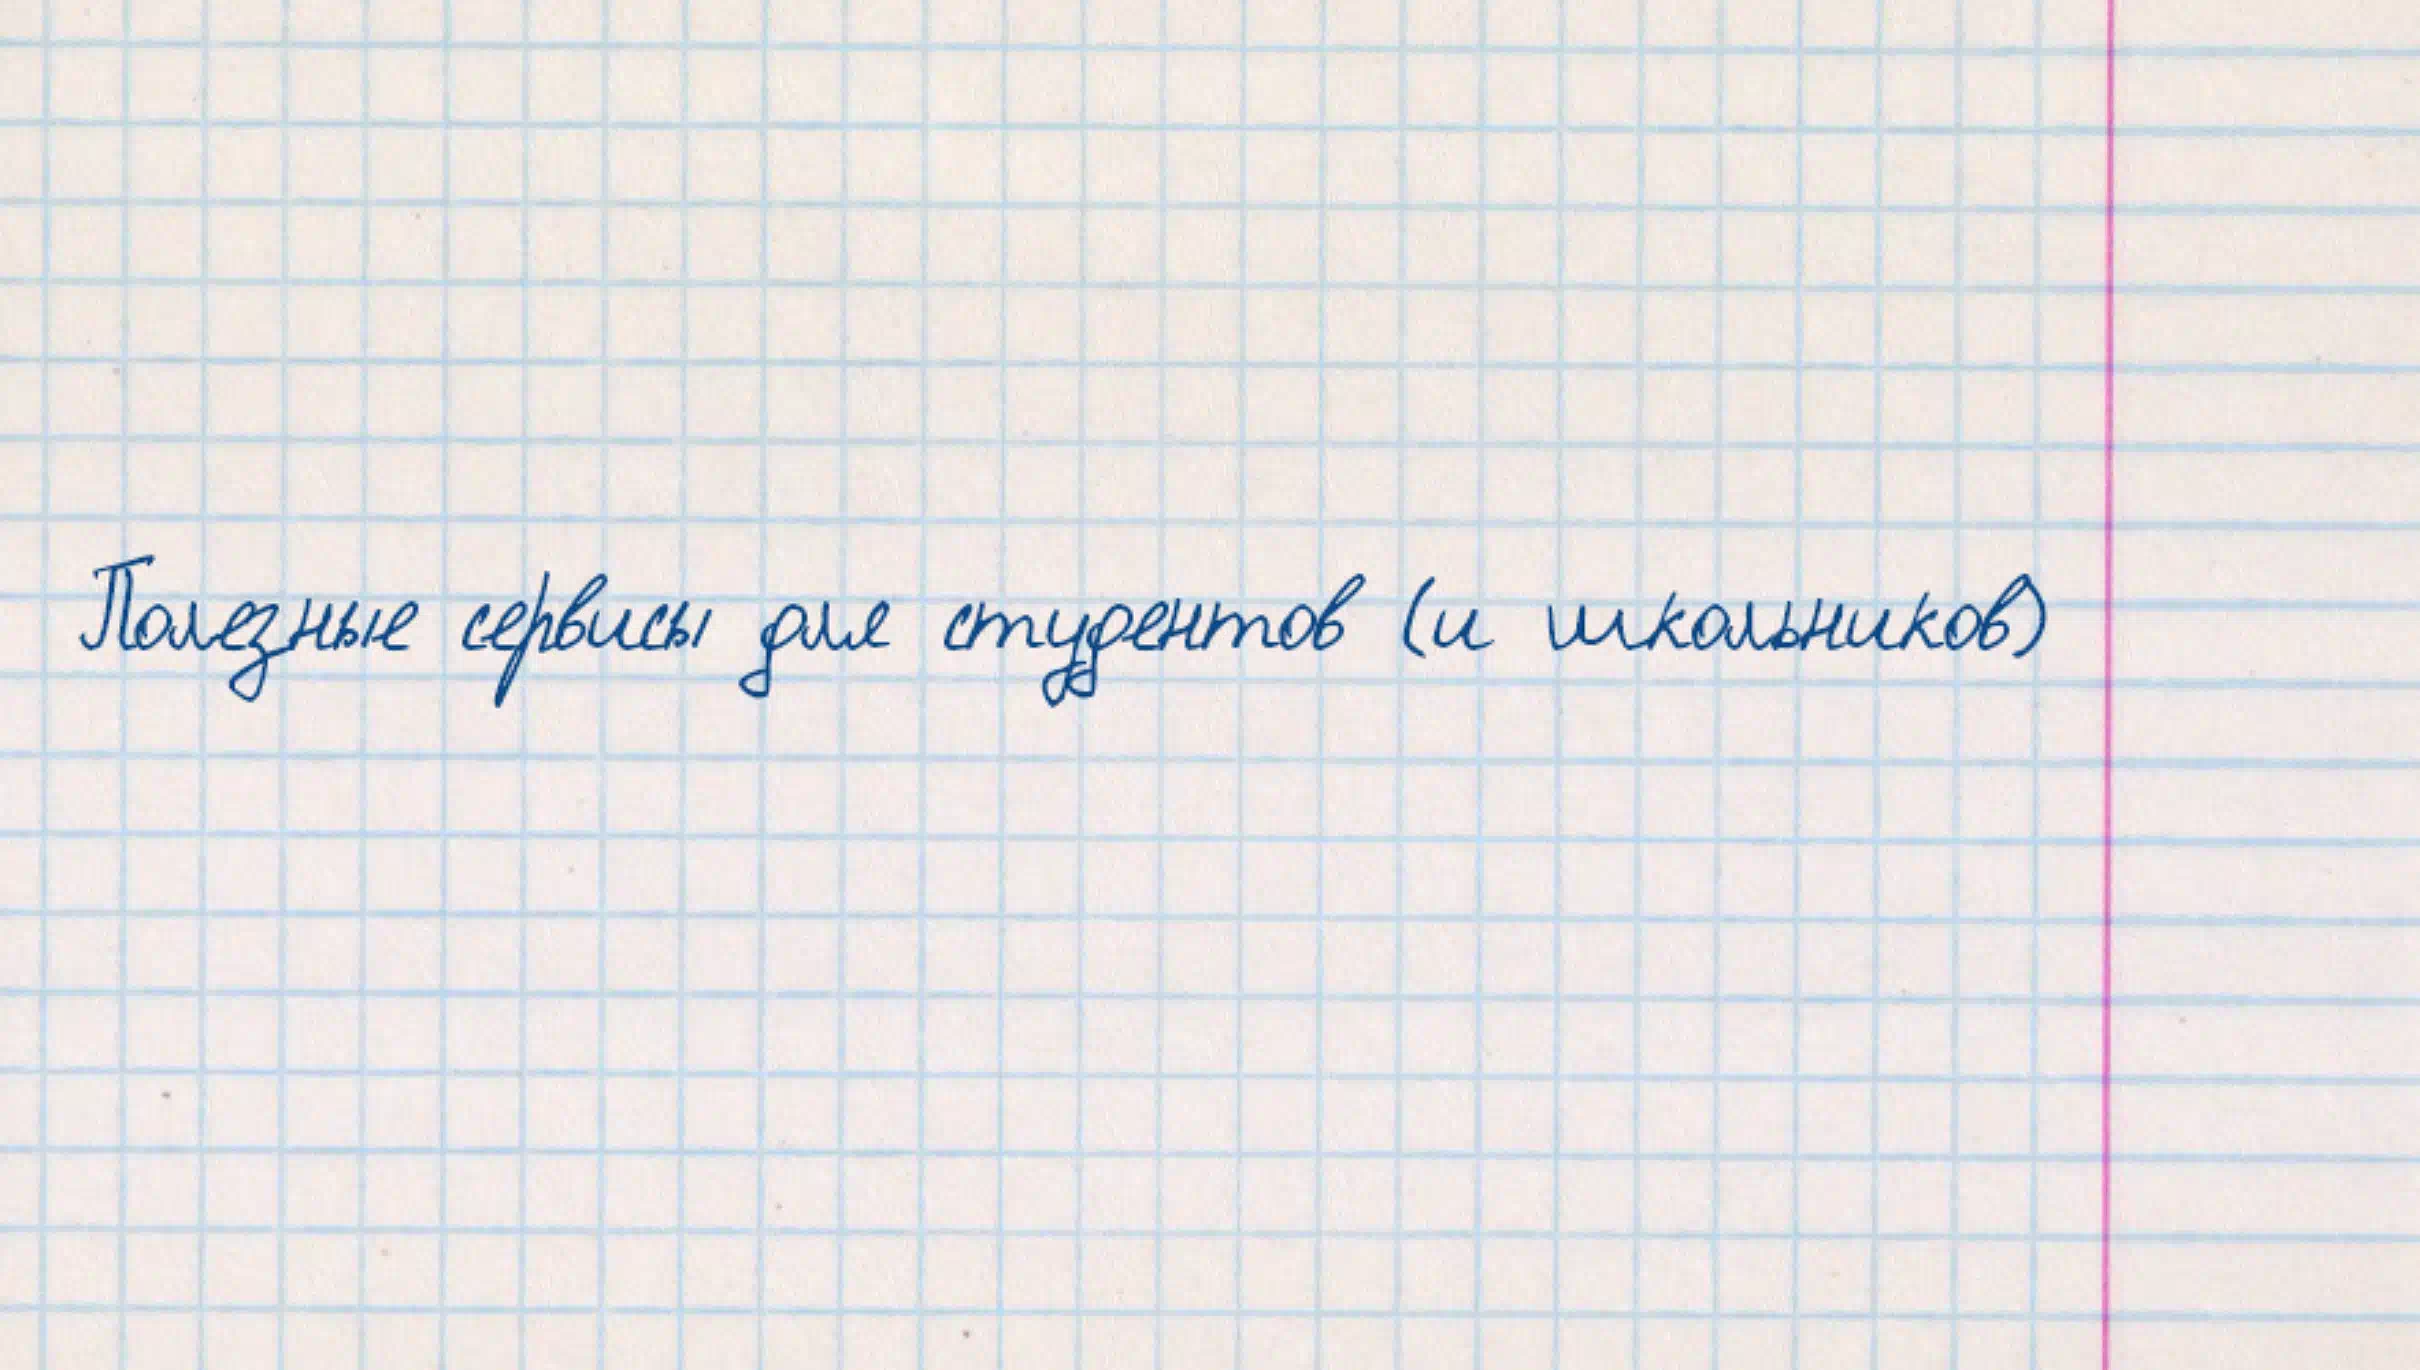 Полезные сервисы для студентов (и школьников)